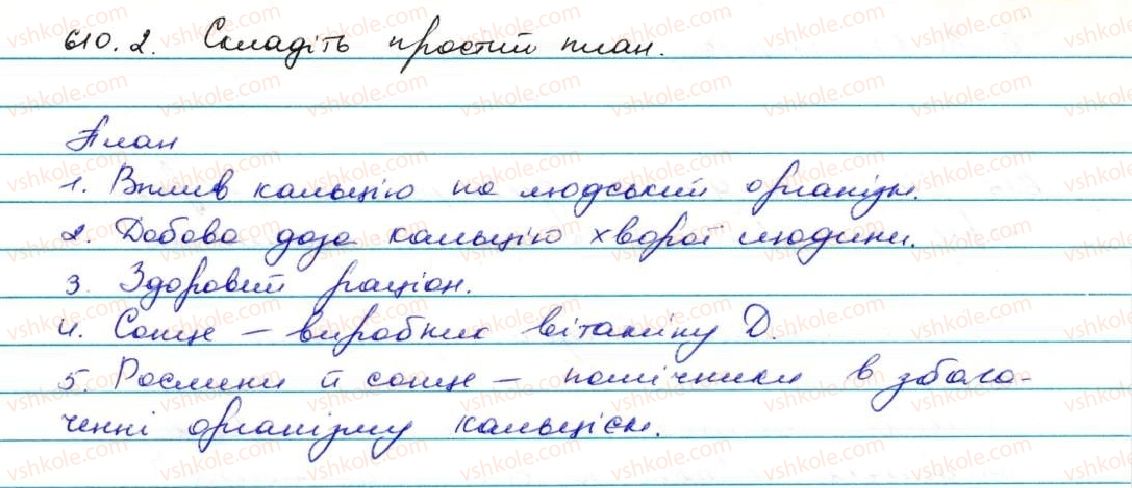 610.2. Складіть простий план.
План
1. Вплив кальцію на людський організм.
2. Добова доза кальцію хворої людини.
3. Здоровий раціон.
4. Сонце – виробник вітаміну D.
5. Рослини й сонце – помічники в збага-
ченні організму кальцієм.